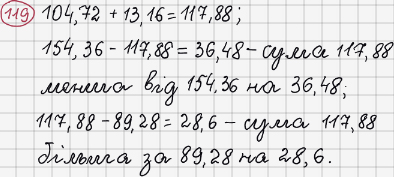 119 104,72 + 13,16 = 117,88;
154,36 - 117,88 = 36,48 - сума 117,88
менша від 154,36 на 36,48;
117,88 - 89,28 = 28,6 - сума 117,88
більша за 89,28 на 28,6.